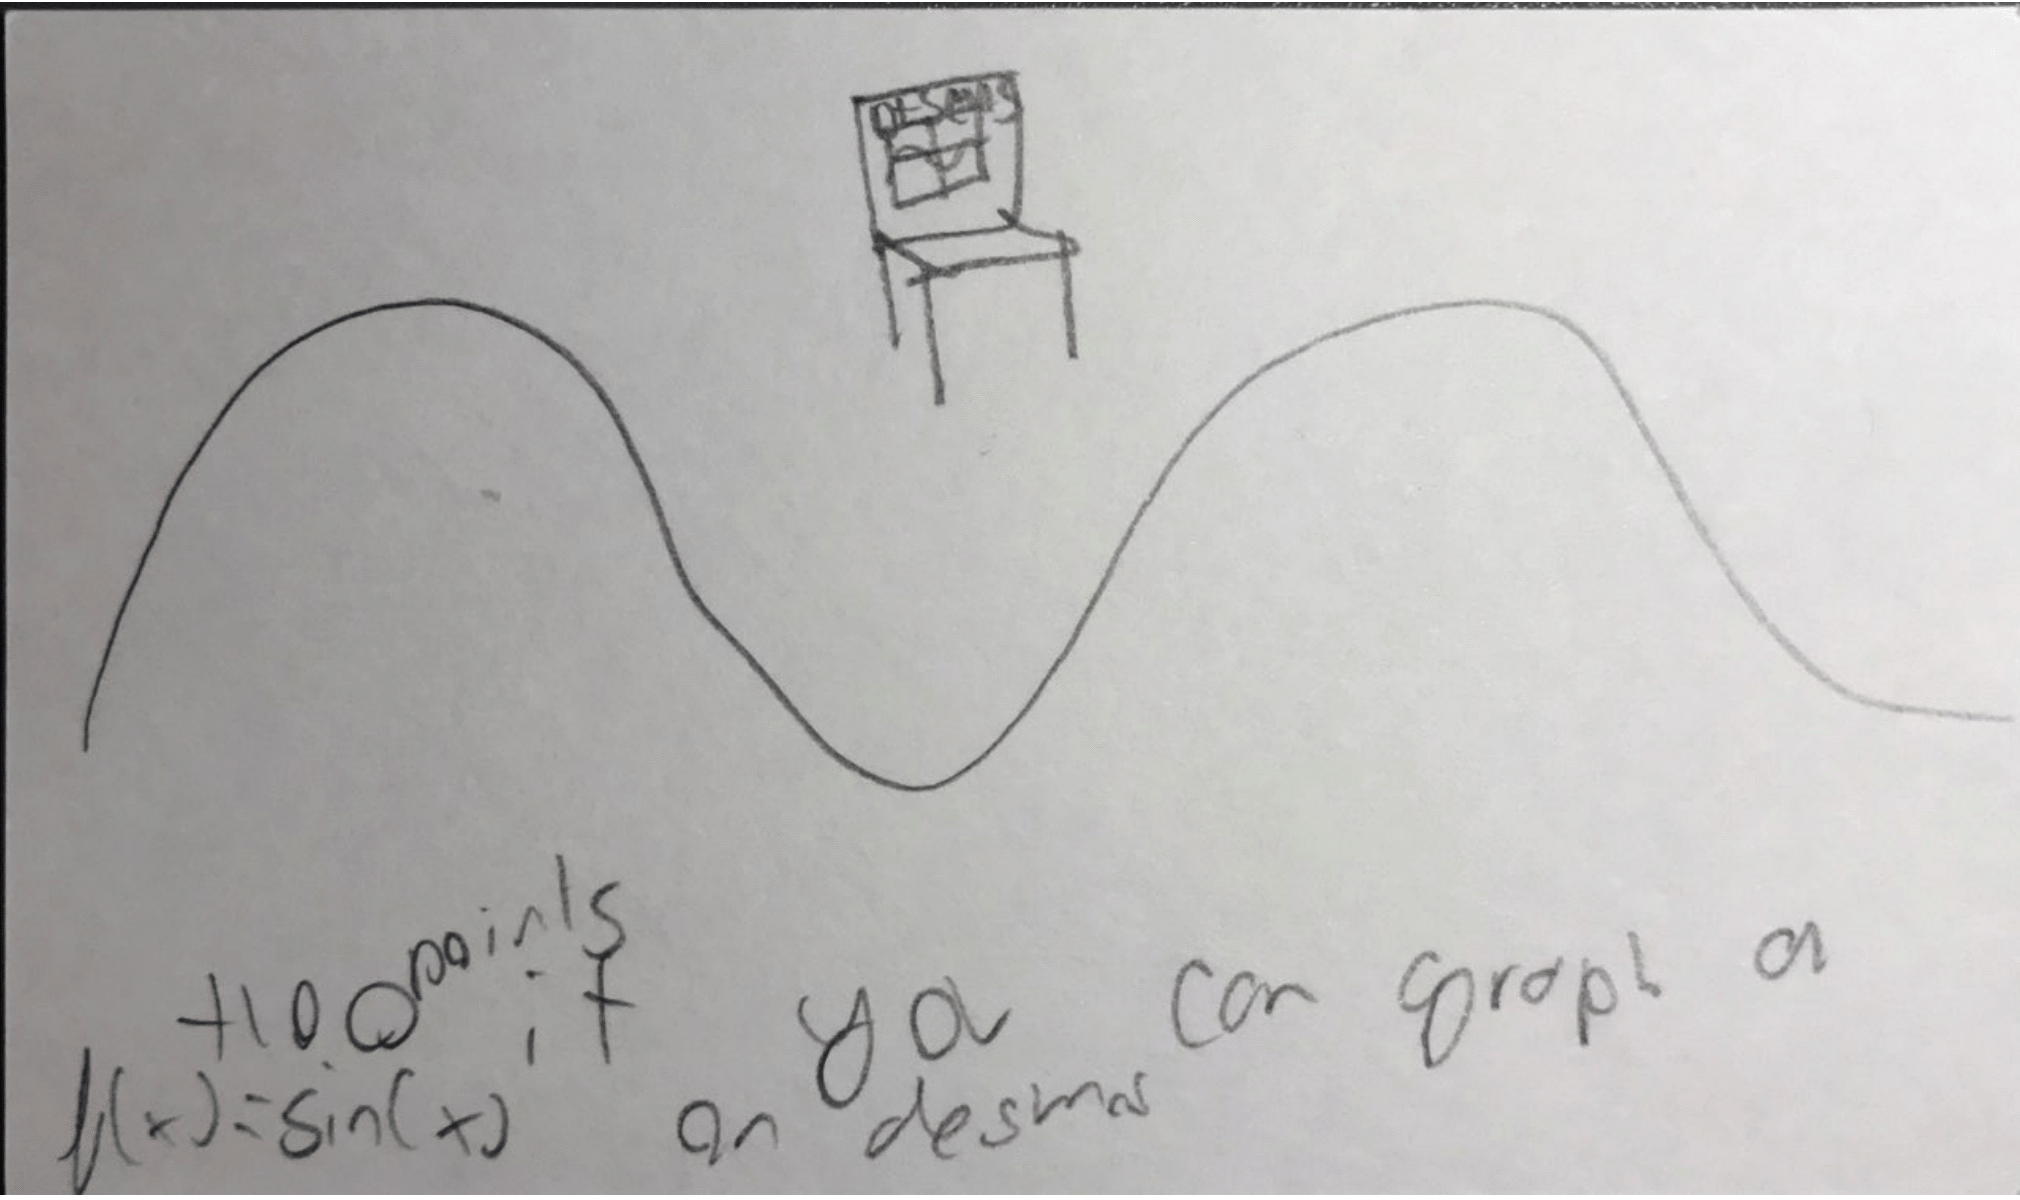 DESMOS
+100 points if ya can graph a
f(x)=sin(x) on desmos